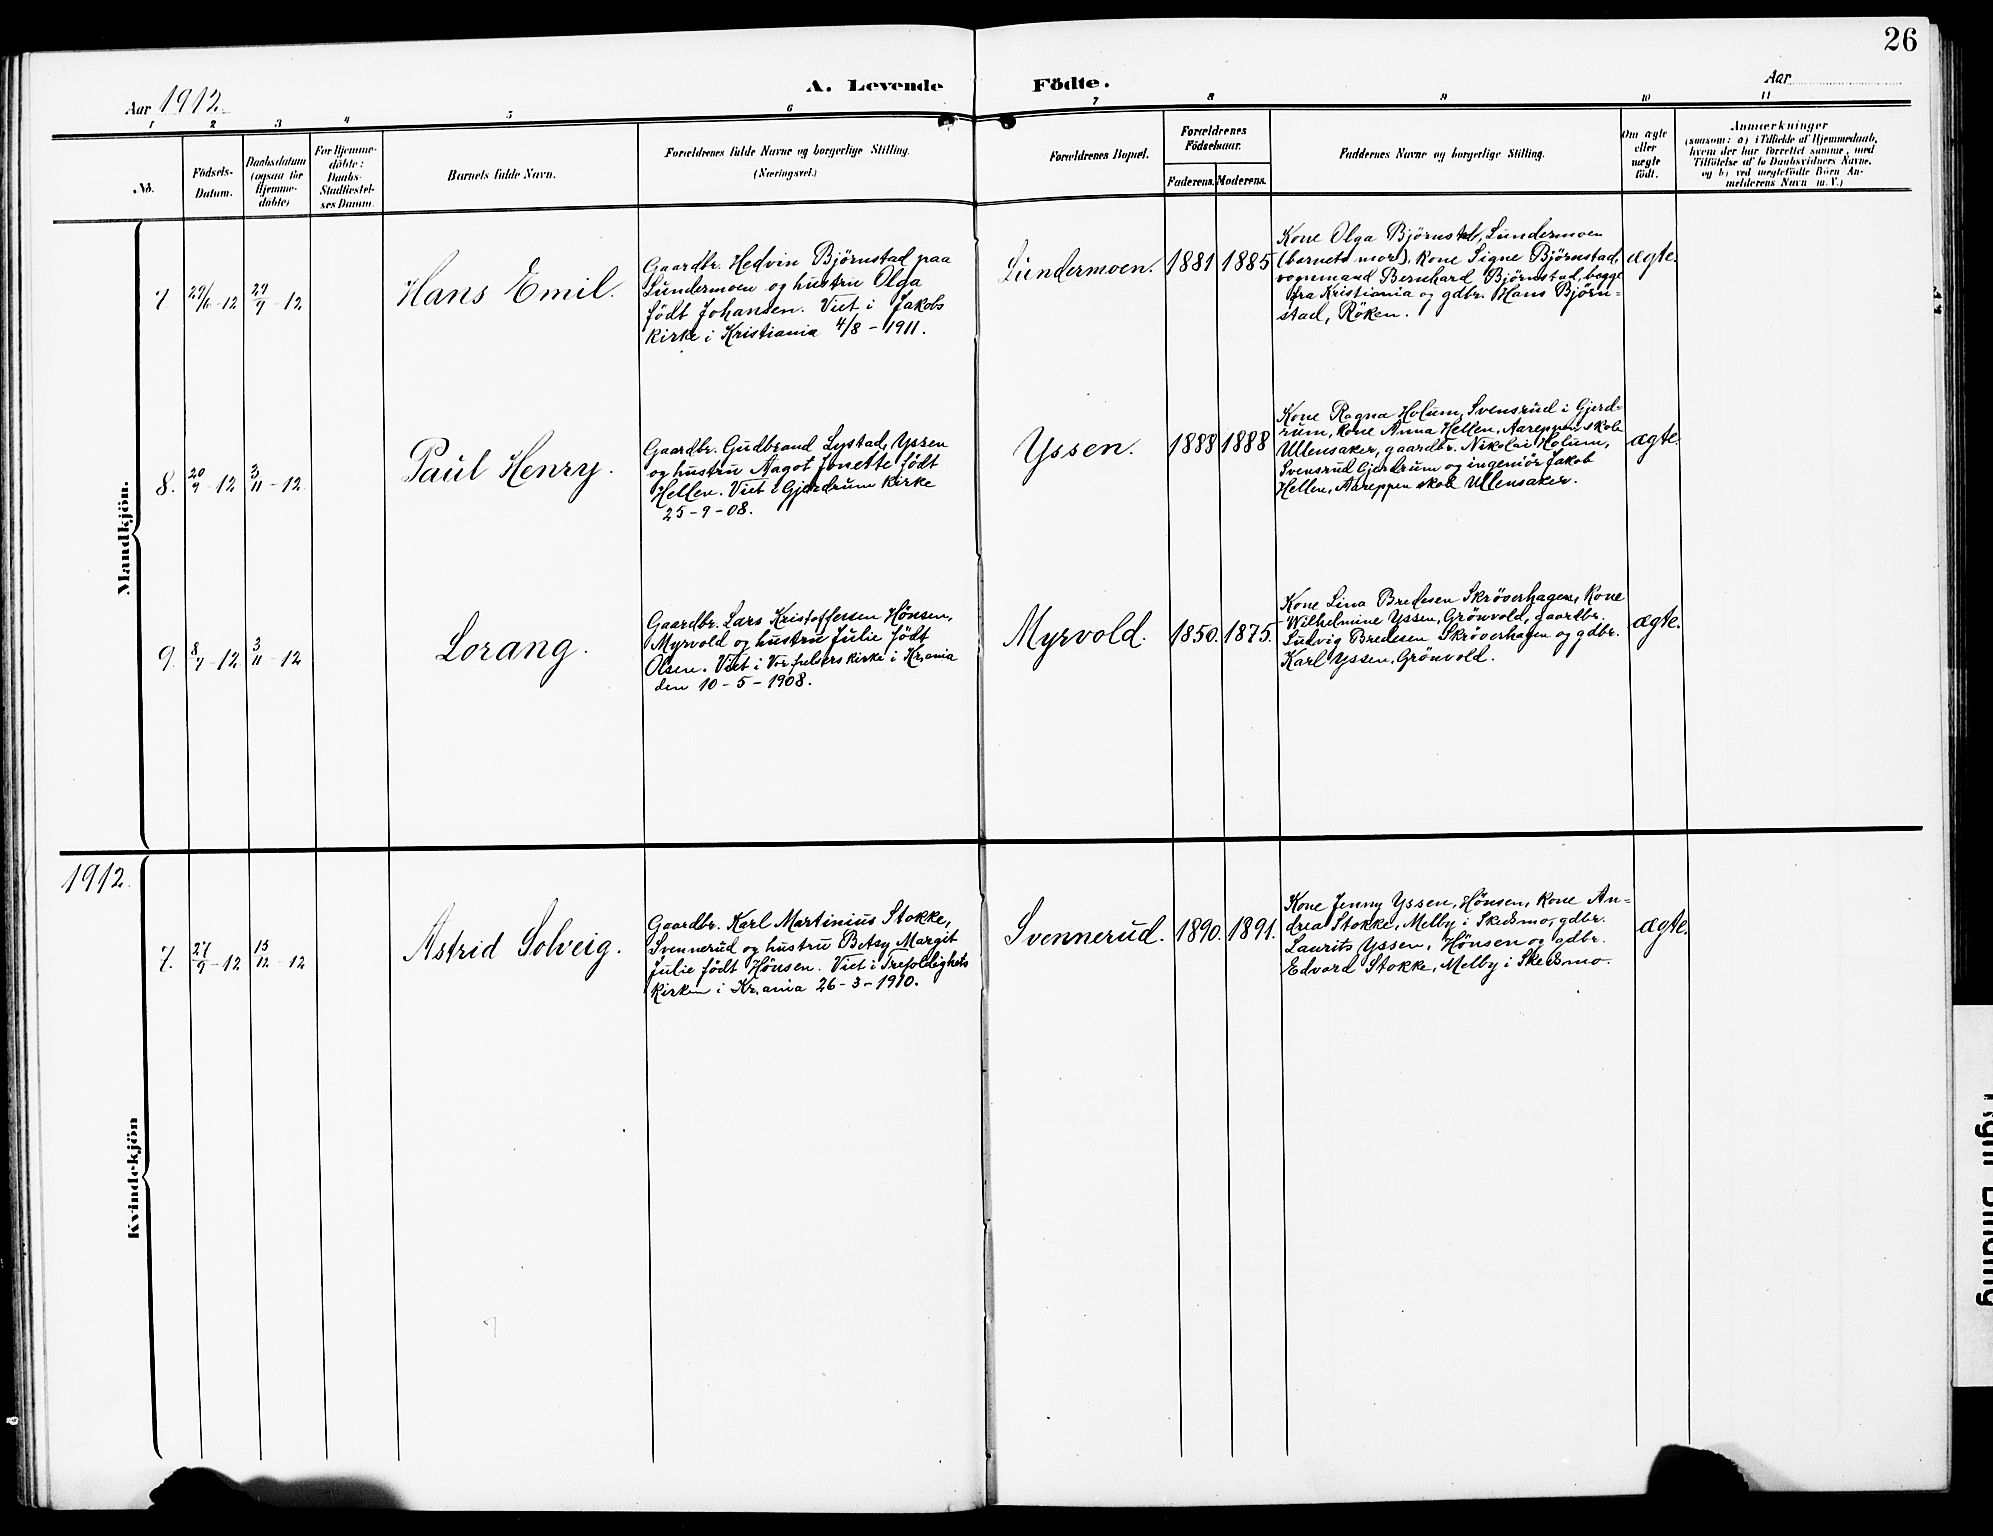 26
A. Levende Födte.
Aar 1912.
Aar
1 2 3 4 5 6 7 8 9 10 11
No.
Födsels-
Datum.
Daabsdatum
(ogsaa for
Hjemme-
döbte)
For Hjemme-
döbte:
Daabs-
Stadfæstel-
ses Datum.
Barnets fulde Navn.
Forældrenes fulde Navne og borgerlige Stilling.
(Næringsvei.)
Forældrenes Bopæl.
Forældrenes
Födselsaar.
Faderens.
Moderens.
Faddernes Navne og borgerlige Stilling.
Om ægte
eller
uægte
födt.
Anmærkninger
(saasom: a) i Tilfælde af Hjemmedaab,
hvem der har forrettet samme, med
Tilföielse af to Daabsvidners Navne,
og b) ved uægtefödte Börn An-
melderens Navn m. V.)
Mandkjön.
7
29/6-12
29/9-12
Hans Emil.
Gaardbr. Hedvin Björnstad paa
Lundermoen og hustru Olga
födt Johansen. Viet i Jakobs
kirke i Kristiania 4/8-1911.
Lundermoen.
1881
1885
Kone Olga Björnstad, Lundermoen
(barnets mor), kone Signe Björnstad,
vognmand Bernhard Björnstad, begge
fra Kristiania og gdbr. Hans Björn-
stad, Röken.
ægte.
8.
20/9-12
3/11-12
Paul Henry.
Gaardbr. Gudbrand Lystad, Yssen
og hustru Aagot Jonette födt
Hellen. Viet i Gjerdrum kirke
25-9-08.
Yssen.
1888
1888
Kone Ragna Holum, Svensrud i Gjerd-
rum, kone Anna Hellen, Aareppen skole
Ullensaker, gaardbr. Nikolai Holum,
Svensrud Gjerdrum og ingeniör Jakob
Hellen, Aareppen skole Ullensaker.
ægte.
9.
8/7-12
3/11-12
Lorang.
Gaardbr. Lars Kristoffersen Hönsen,
Myrvold og hustru Julie födt
Olsen. Viet i Vor frelsers kirke i Kr.ania
den 10-5-1908.
Myrvold.
1850.
1875.
Kone Lina Bredesen Skröverhagen, Kone
Wilhelmine Yssen, Grönvold, gaardbr.
Ludvig Bredesen Skröverhagen og gdbr.
Karl Yssen, Grönvold.
ægte.
1912.
Kvindekjön
7.
27/9-12
15/12-12
Astrid Solveig.
Gaardbr. Karl Martinius Stokke,
Svennerud og hustru Betsy Margit
Julie födt Hönsen. Viet i Trefoldigheds
kirken i Kr.ania 26-3-1910.
Svennerud.
1890.
1891.
Kone Jenny Yssen, Hönsen, kone An-
drea Stokke, Melby i Skedsmo, gdbr.
Laurits Yssen, Hönsen og gdbr.
Edvard Stokke, Melby i Skedsmo.
ægte.